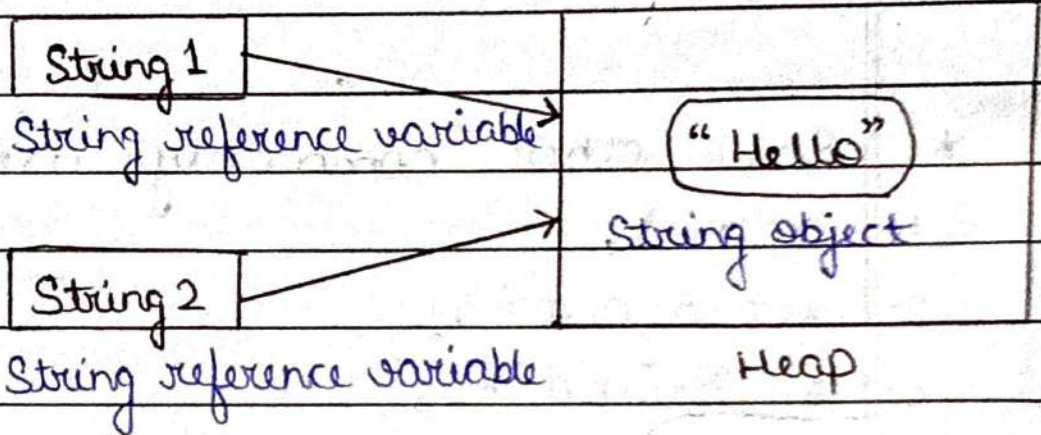 String 1
String reference variable
"Hello"
String object
String 2
String reference variable
Heap